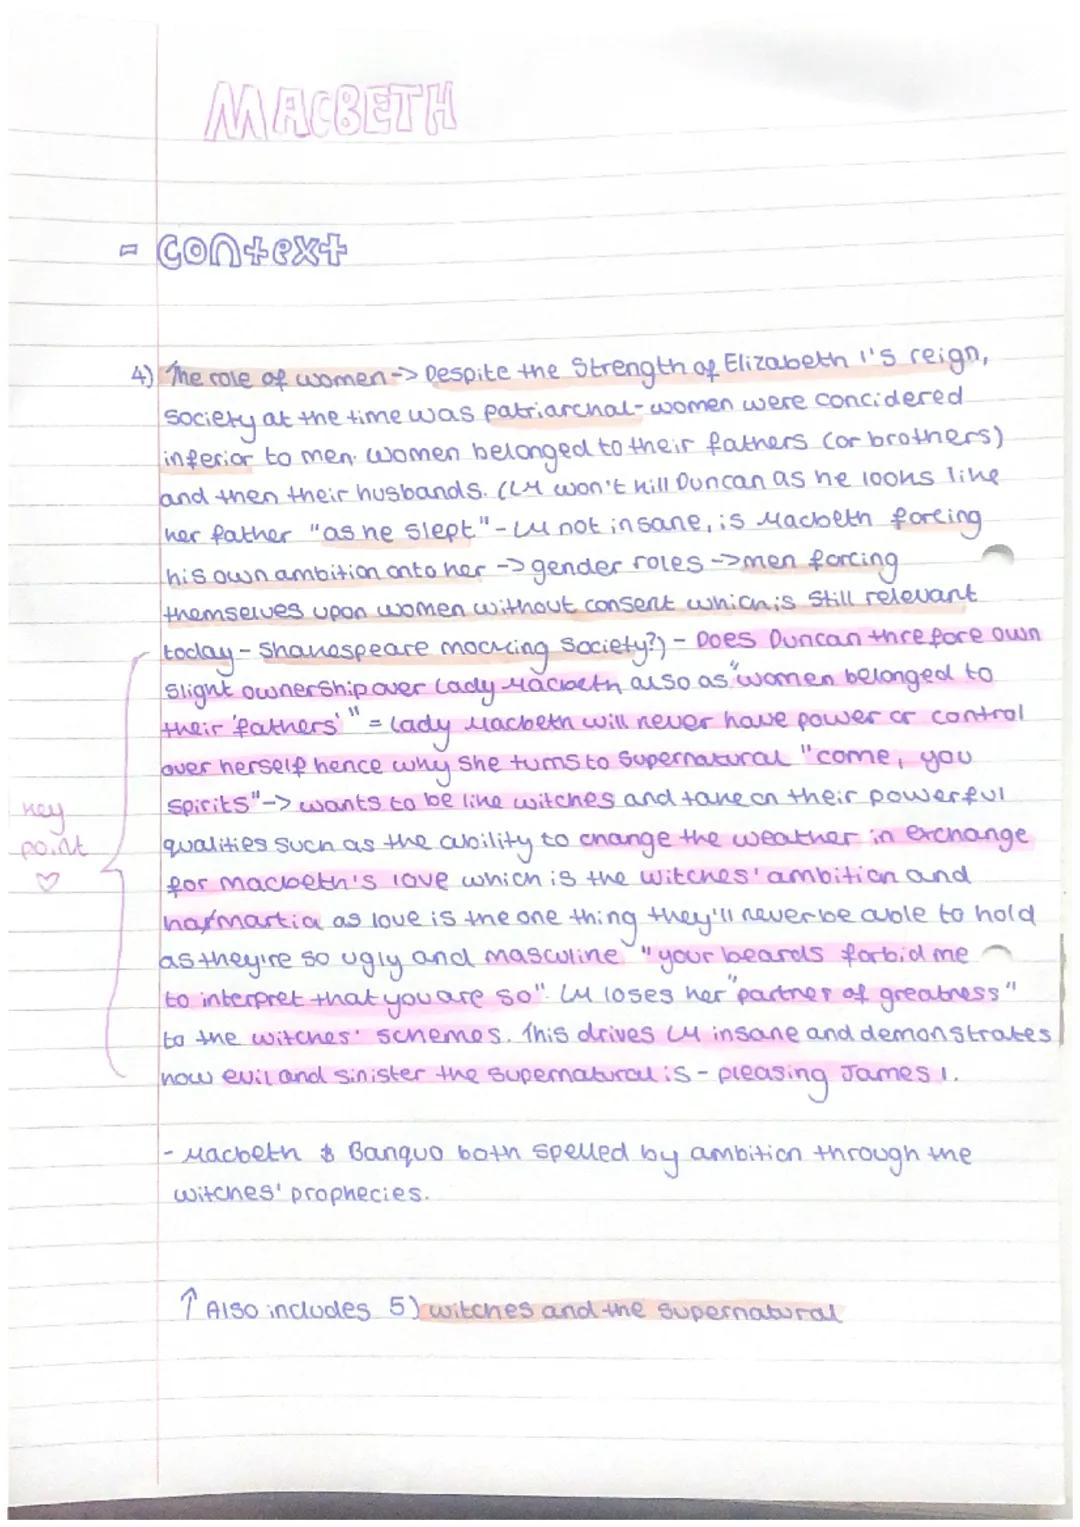 MACBETH
- Context
4) The role of women -> Despite the Strength of Elizabeth 1's reign,
society at the time was patriarchal - women were concidered
inferior to men. women belonged to their fathers (or brothers)
and then their husbands. (LM won't kill Duncan as he looks like
her father "as he slept" - LM not insane, is Macbeth forcing
his own ambition onto her -> gender roles -> men forcing
themselves upon women without consent which is still relevant
today - Shakespeare mocking society?) - Does Duncan threfore own
slight ownership over Lady Macbeth also as "women belonged to
their 'fathers' " = Lady Macbeth will never have power or control
over herself hence why she turns to supernatural "come, you
spirits" -> wants to be like witches and take on their powerful
key
point
♡
qualities such as the ability to change the weather in exchange
for macbeth's love which is the witches' ambition and
harmartia as love is the one thing they'll never be able to hold
as they're so ugly and masculine "your beards forbid me
to interpret that you are so". LM loses her "partner of greatness"
to the witches' schemes. This drives LM insane and demonstrates
how evil and sinister the supernatural is - pleasing James 1.
- Macbeth & Banquo both spelled by ambition through the
witches' prophecies.
↑ Also includes 5) witches and the supernatural